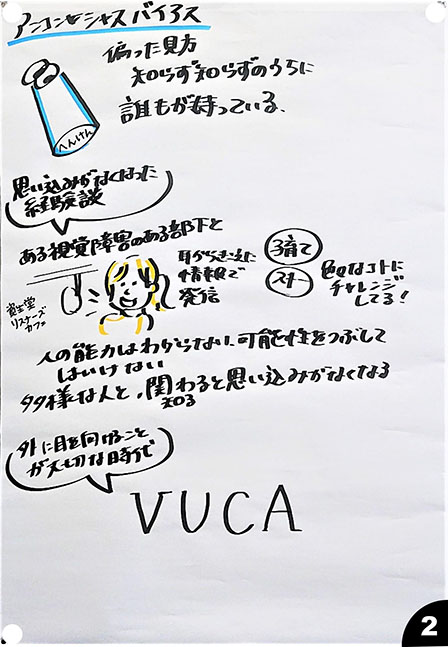 アンコンシャスバイアス
偏った見方
知らず知らずのうちに
誰もが持っている、
へんけん
思い込みがなくなった
経験談
ある視覚障害のある部下と
耳からきこえた
情報で
発信
資生堂
リスナーズ
カフェ
子育て
スキー
色々なコトに
チャレンジ
してる!
人の能力はわからない、可能性をつぶして
はいけない
多様な人と、関わると思い込みがなくなる
知る
外に目を向けること
が大切な時代
VUCA
2